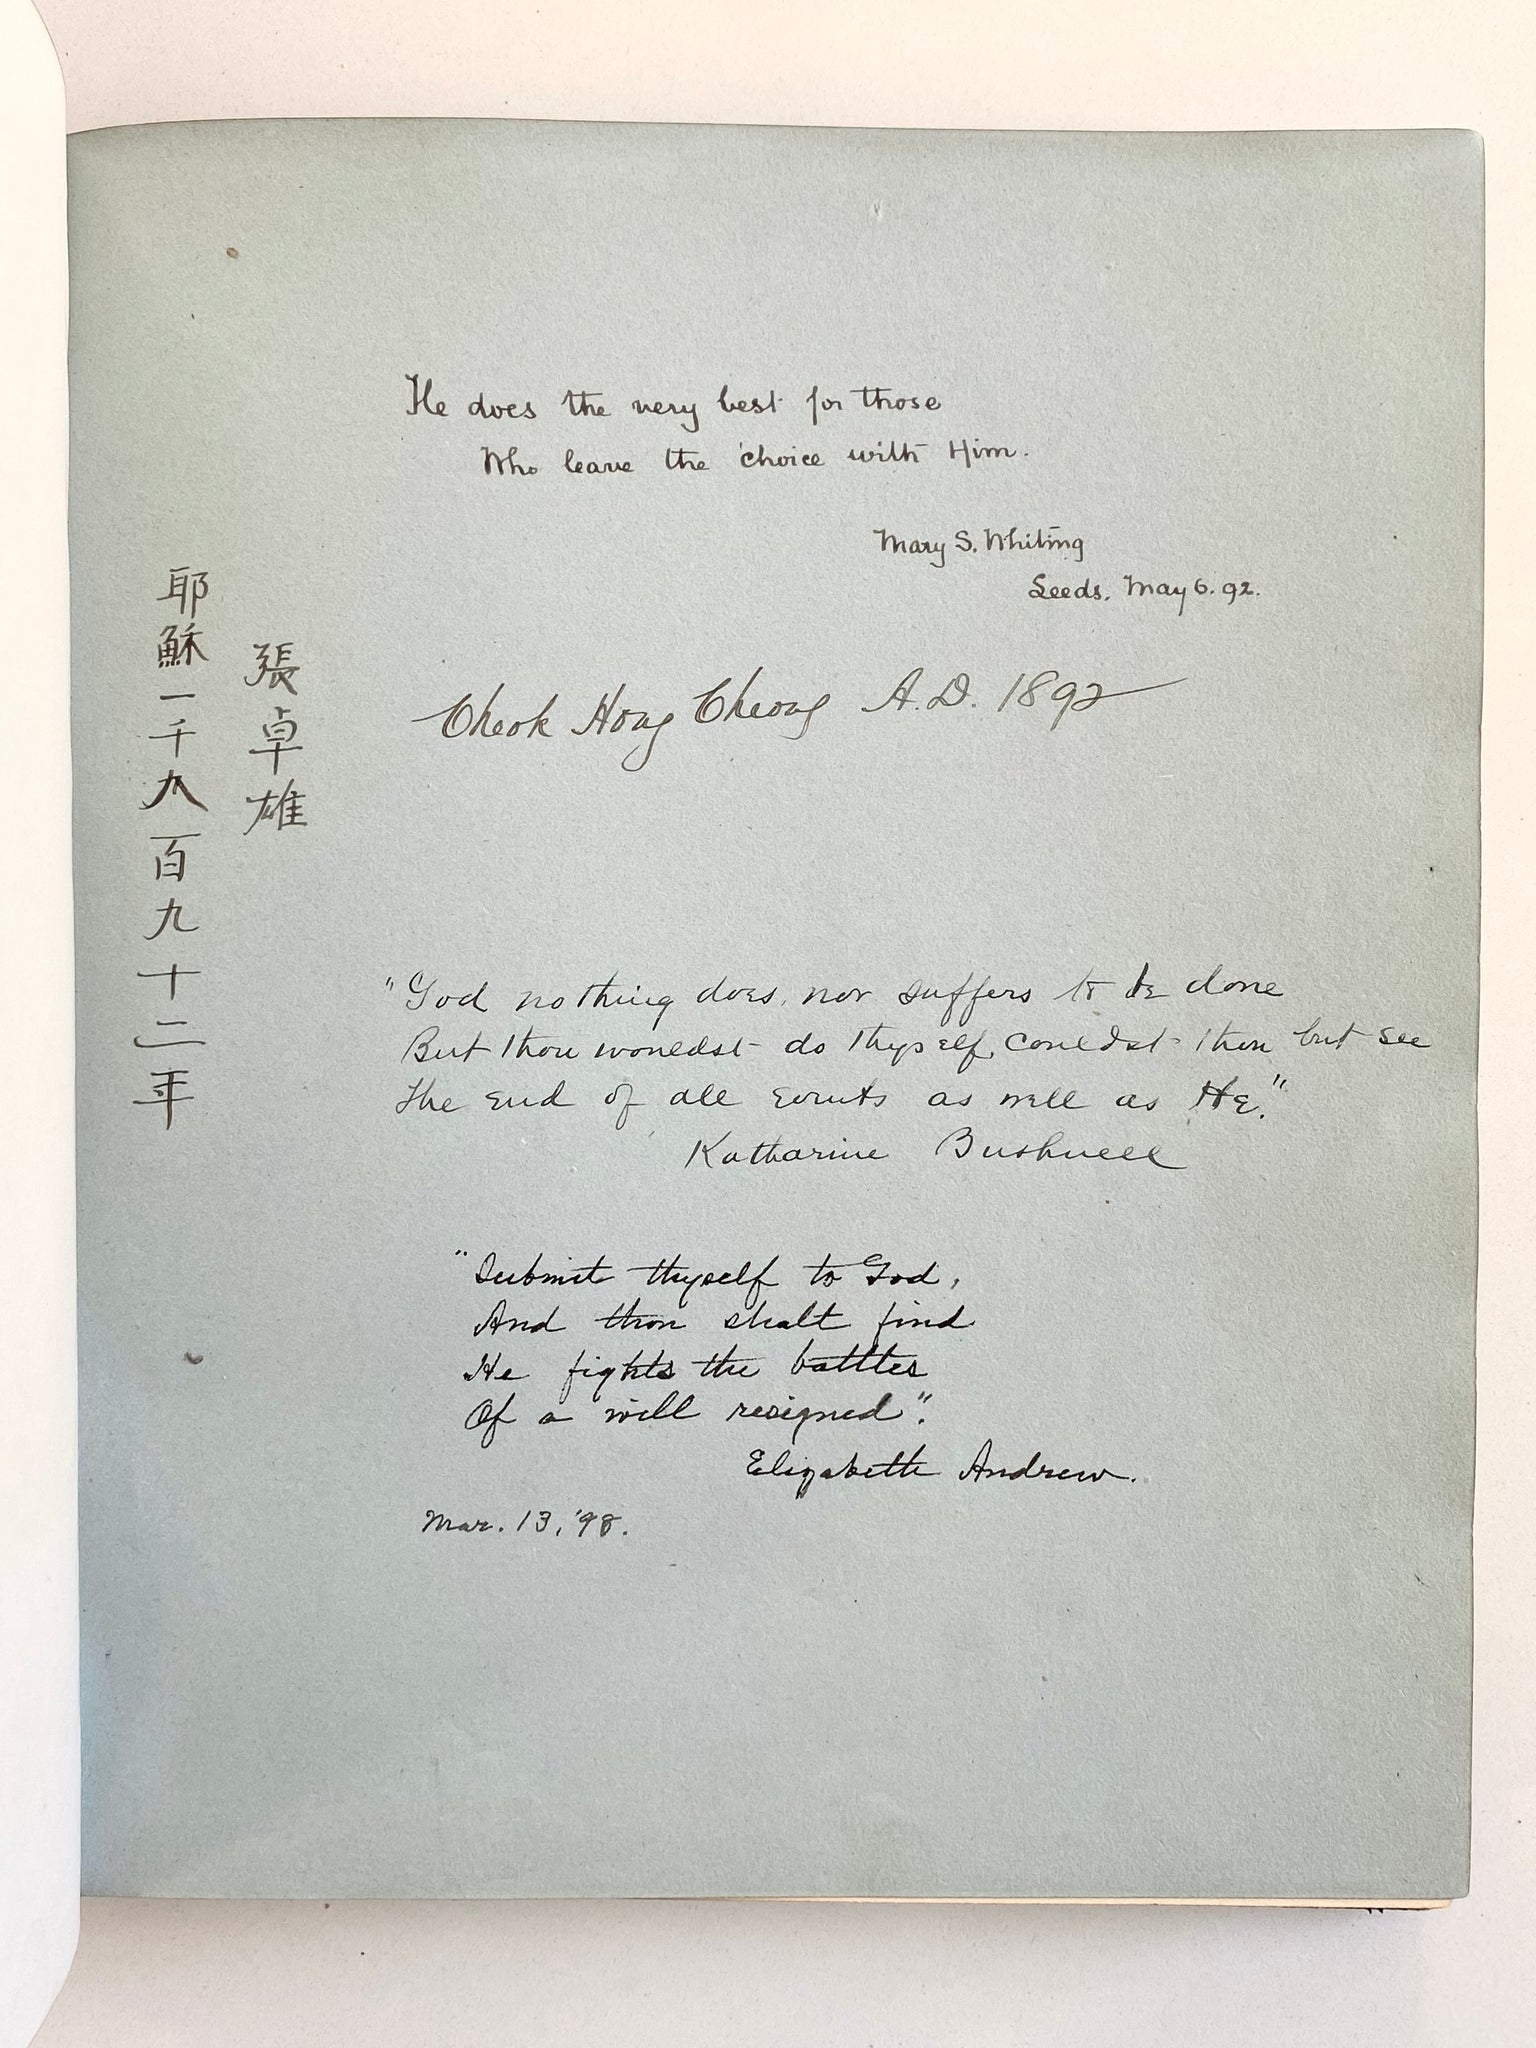 He does the very best for those
Who leave the choice with Him.
Mary S. Whiting
Leeds. May 6. 92.
張卓雄
耶穌一千八百九十二年
Cheok Hong Cheong A.D. 1892
"God nothing does, nor suffers to be done
But thou wouldst do thyself, couldst thou but see
The end of all events as well as He."
Katharine Bushnell
"Submit thyself to God,
And thou shalt find
He fights the battles
Of a will resigned".
Elizabeth Andrew.
Mar. 13, '98.